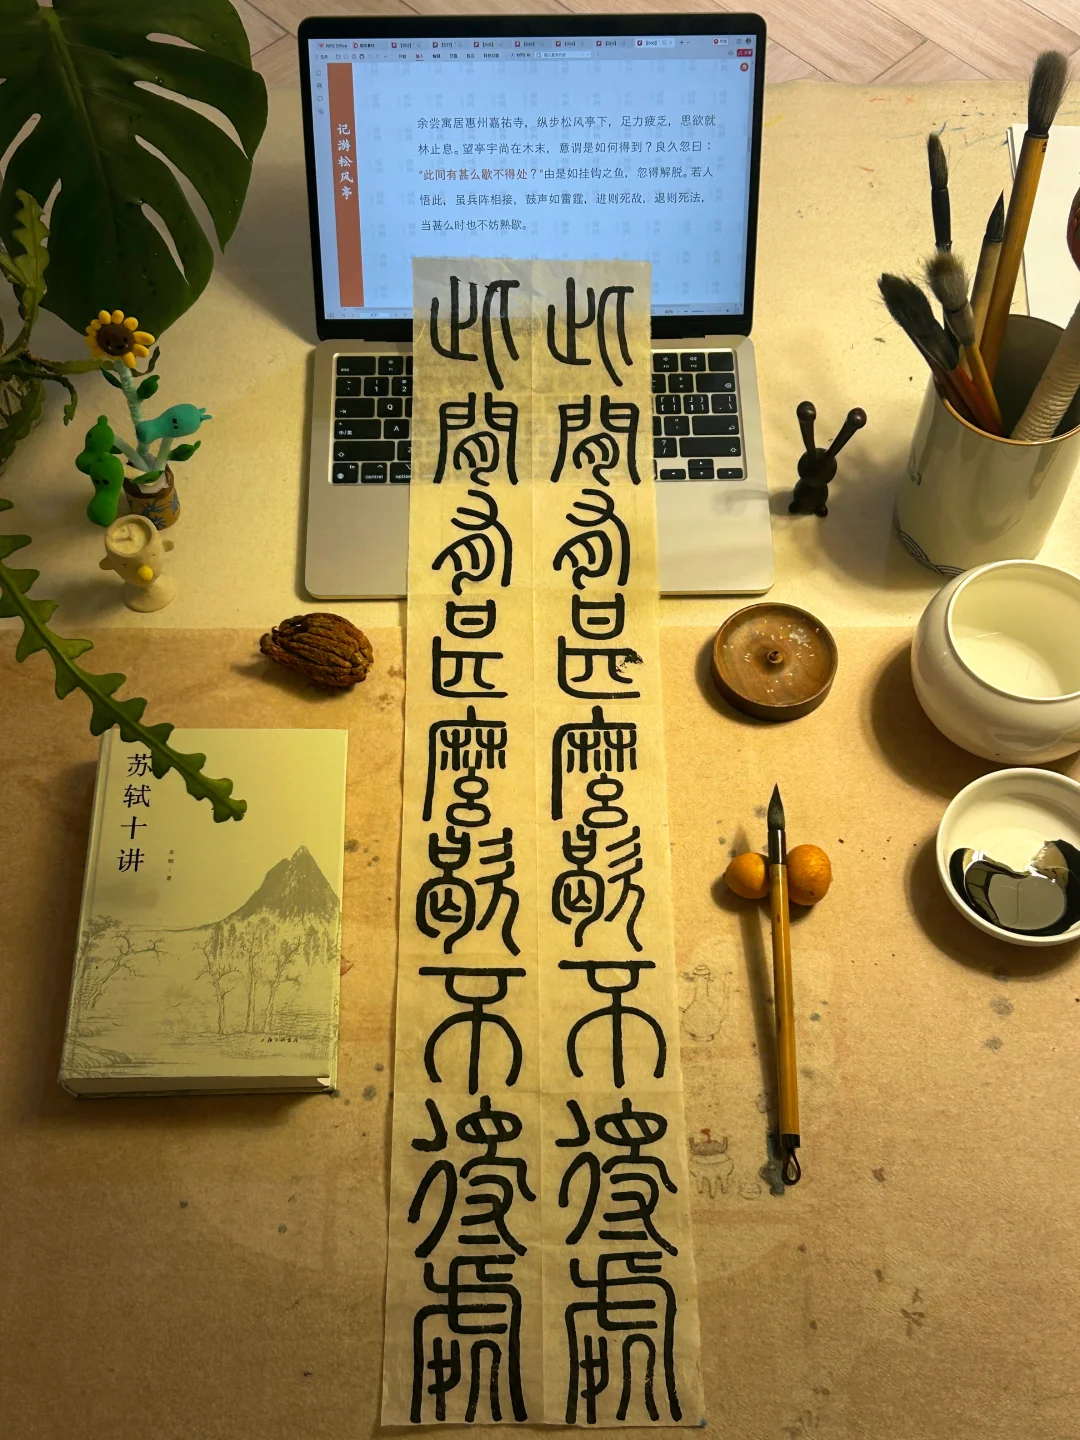 WPS Office
记游松风亭
余尝寓居惠州嘉祐寺，纵步松风亭下，足力疲乏，思欲就
林止息。望亭宇尚在木末，意谓是如何得到？良久忽曰：
“此间有甚么歇不得处？”由是如挂钩之鱼，忽得解脱。若人
悟此，虽兵阵相接，鼓声如雷霆，进则死敌，退则死法，
当甚么时也不妨熟歇。
此間有甚麼歇不得處
此間有甚麼歇不得處
苏轼十讲
朱刚·著